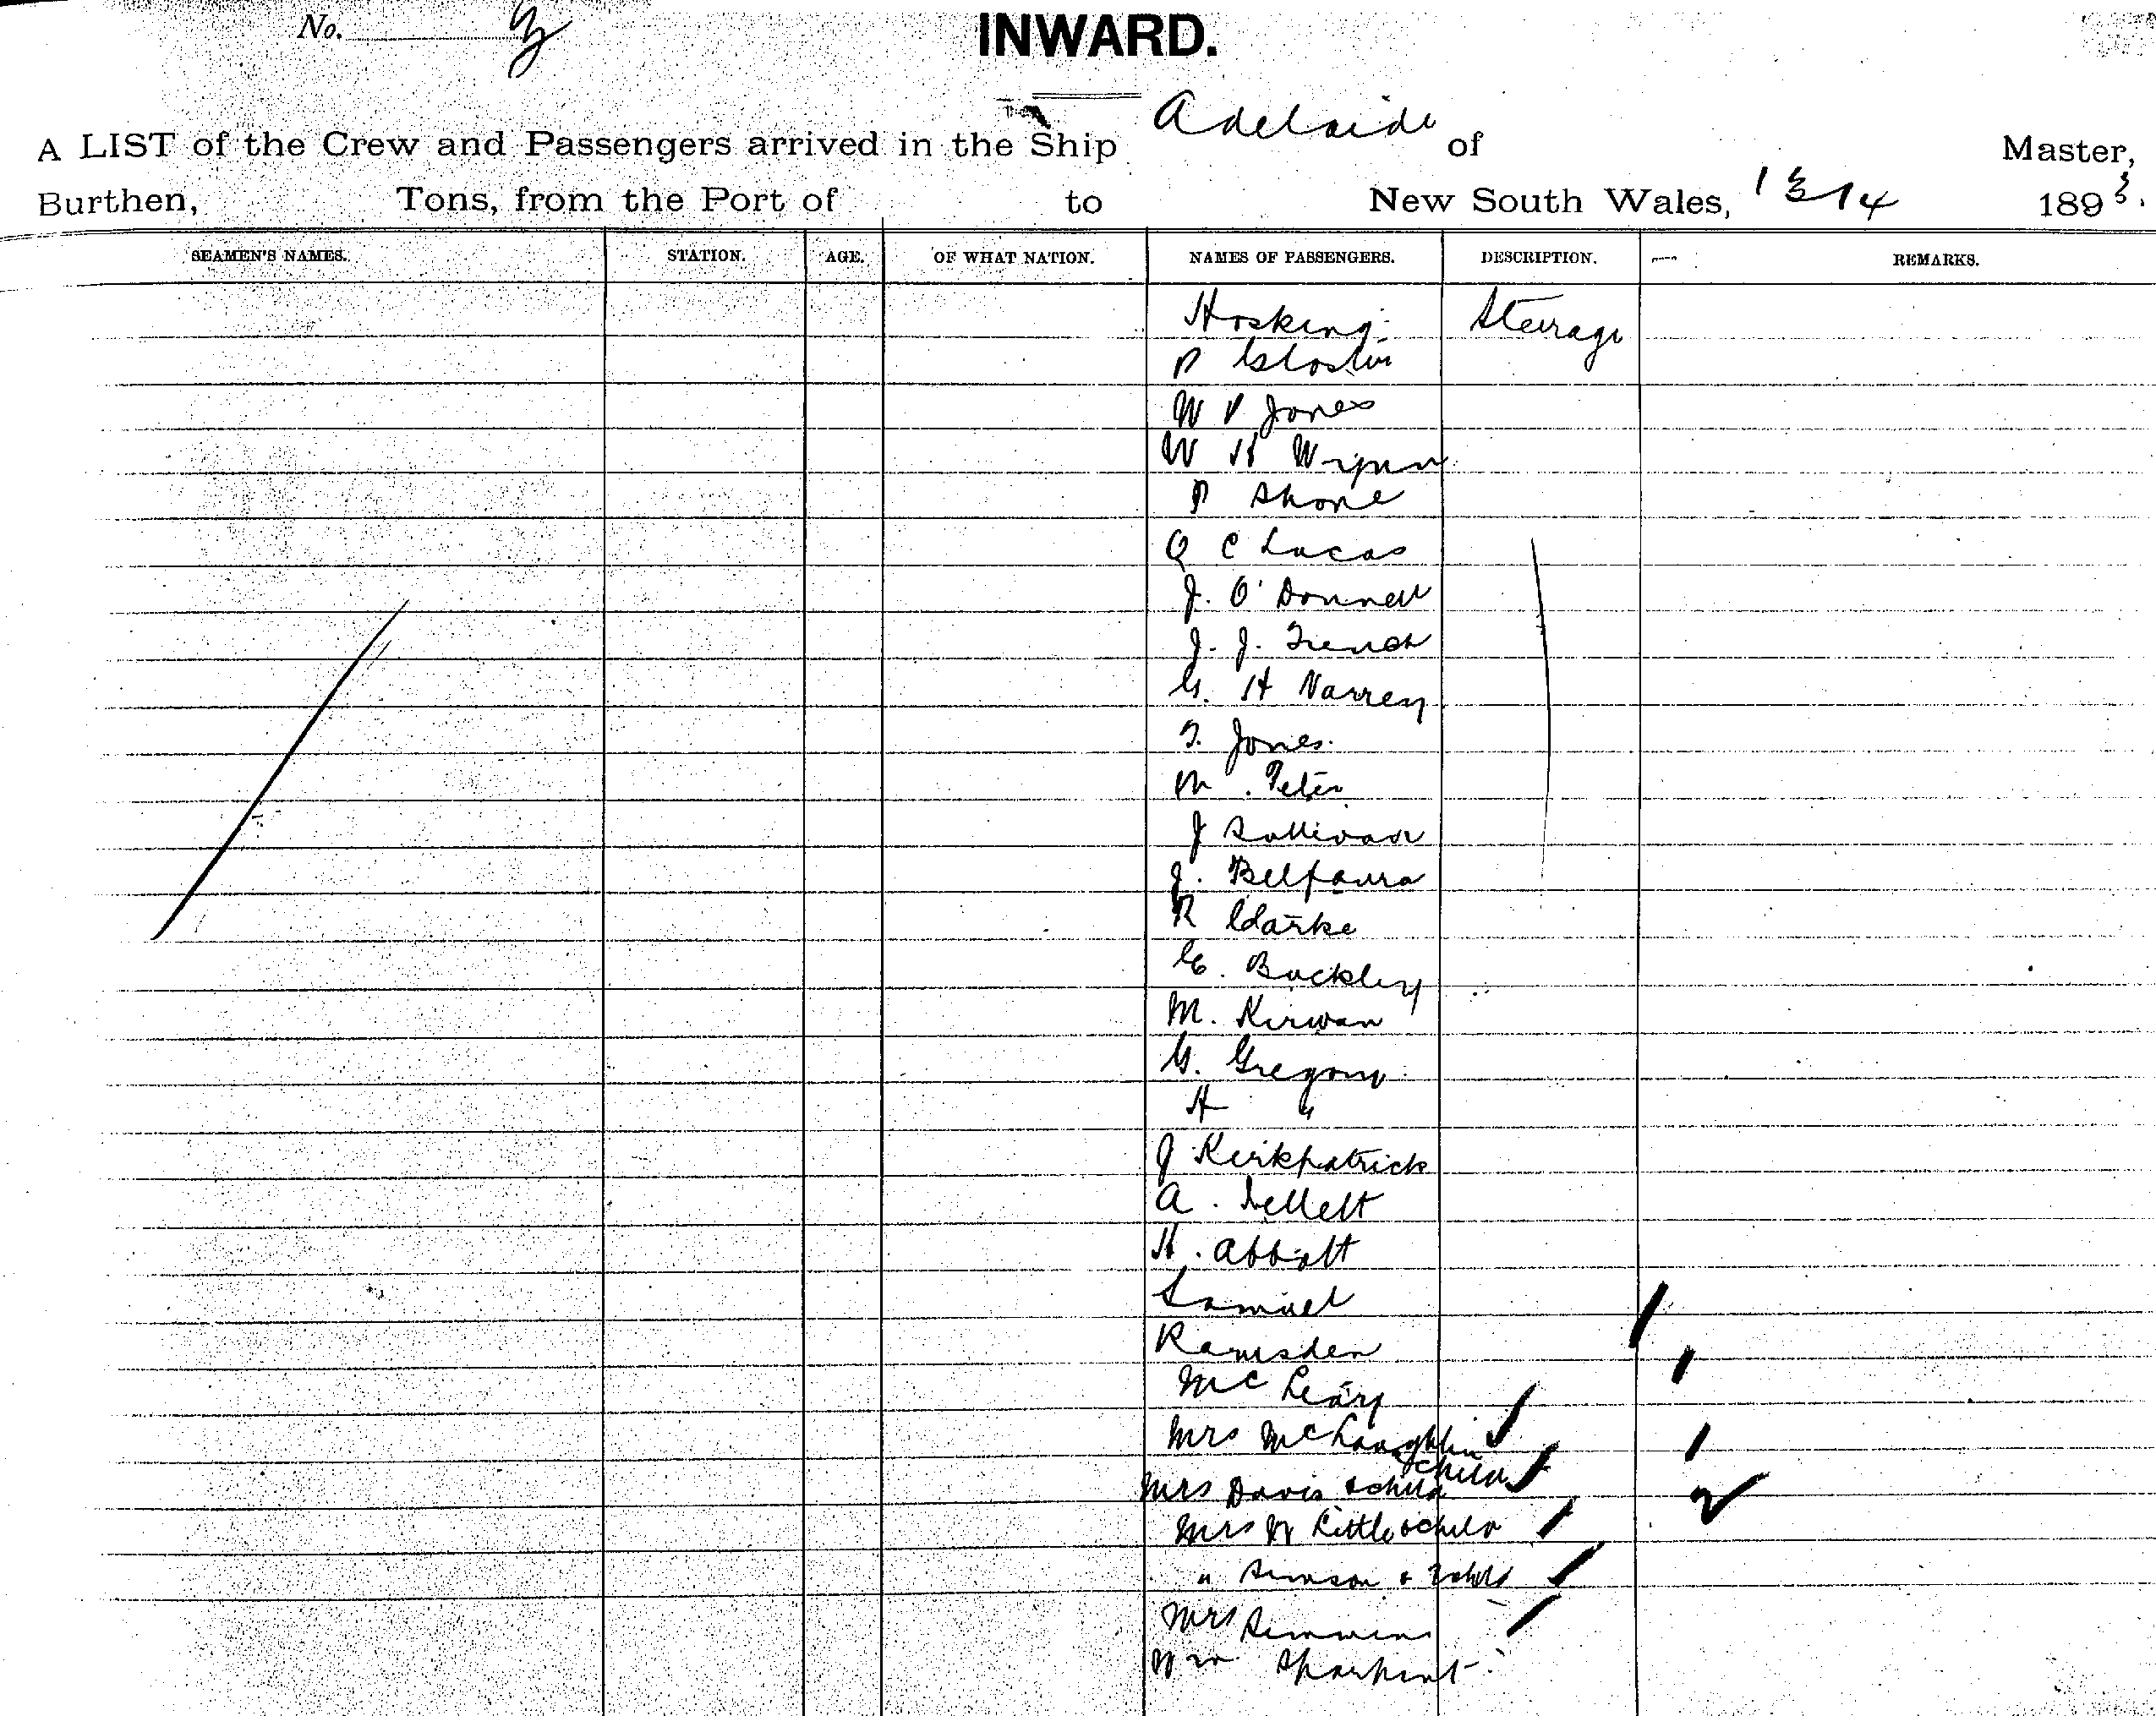 No. 3
INWARD.
A LIST of the Crew and Passengers arrived in the Ship Adelaide of Master,
Burthen, Tons, from the Port of to New South Wales, 13/4 1893.
SEAMEN'S NAMES. STATION. AGE. OF WHAT NATION. NAMES OF PASSENGERS. DESCRIPTION. REMARKS.
Hosking Steerage
P Gloster
W P Jones
W H Wynn
P Shone
C Lucas
J. O'Donnell
J. J. French
G. H Narrey
T. Jones.
M. Peter
J Sullivan
J.
R Clarke
E. Buckley
M. Kirwan
G. Gregory
H "
J Kirkpatrick
A. Kellett
H. Abbott
Samuel
Ramsden
McLeary
Mrs McLaughlin
child
Mrs Davis & child
Mrs W Little & child
" Simson & 2 child
Mrs Simmons
Wm